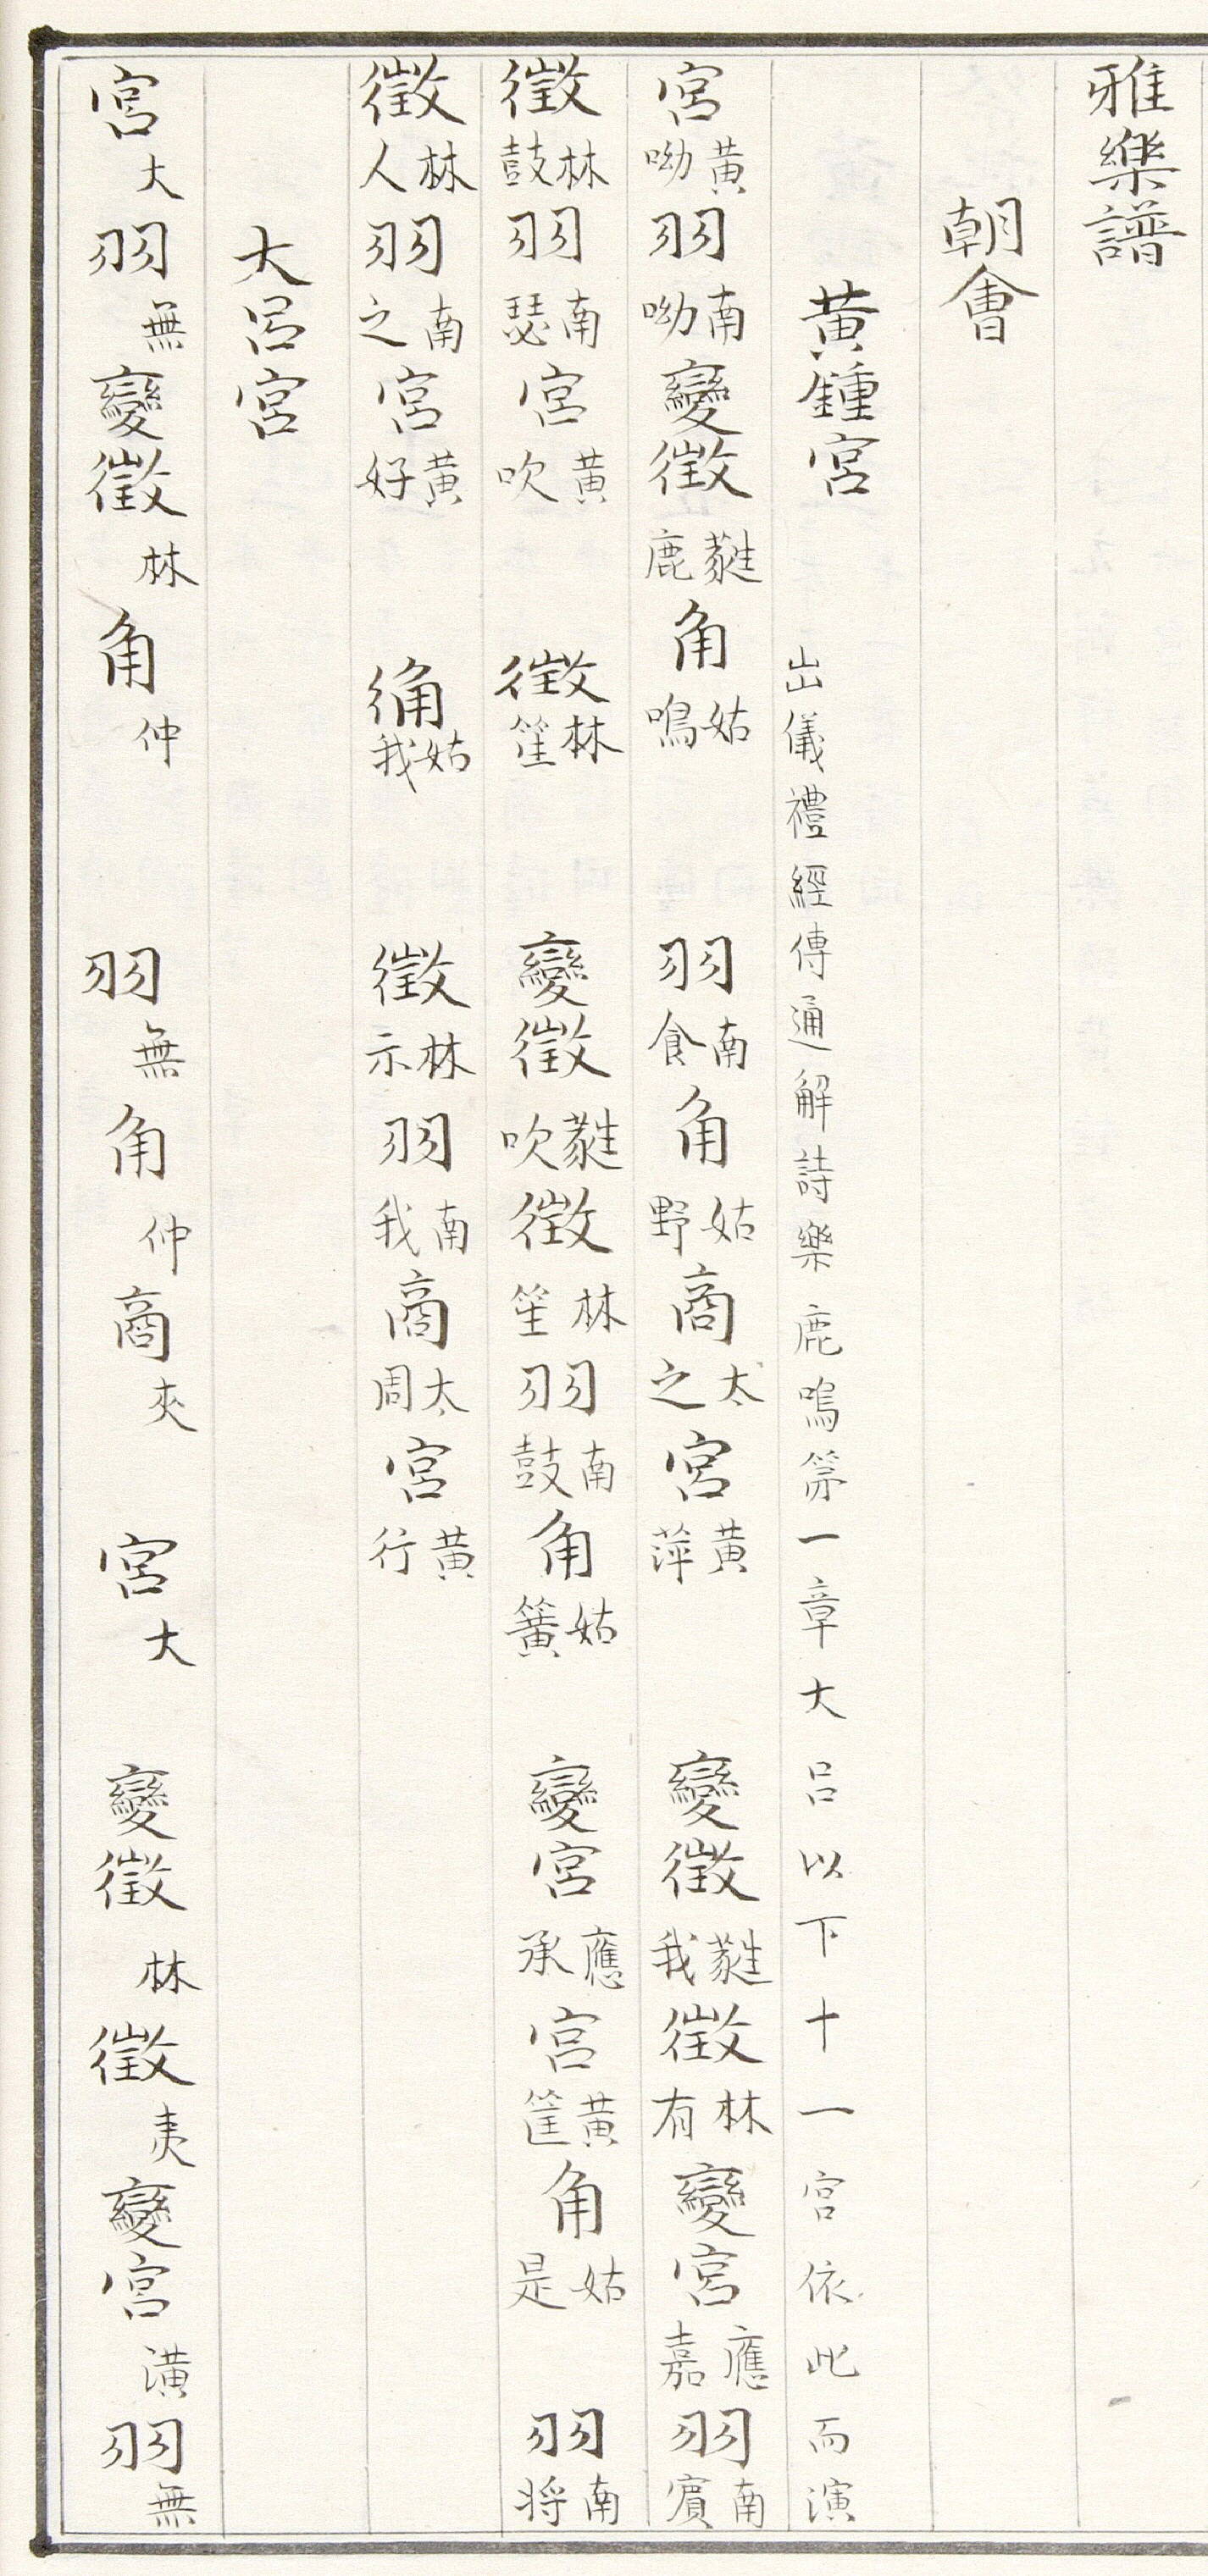 雅樂譜
朝會
黃鍾宮 出儀禮經傳通解詩樂鹿鳴第一章大呂以下十一宮依此而演
宮黃呦 羽南呦 變徵蕤鹿 角姑鳴 羽南食 角姑野 商太之 宮黃萍 變徵蕤我 徵林有 變宮應嘉 羽南賓
徵林鼓 羽南瑟 宮黃吹 徵林笙 變徵蕤吹 徵林笙 羽南鼓 角姑簧 變宮應承 宮黃筐 角姑是 羽南将
徵林人 羽南之 宮黃好 角姑我 徵林示 羽南我 商太周 宮黃行
大呂宮
宮大 羽無 變徵林 角仲 羽無 角仲 商夾 宮大 變徵林 徵夷 變宮潢 羽無